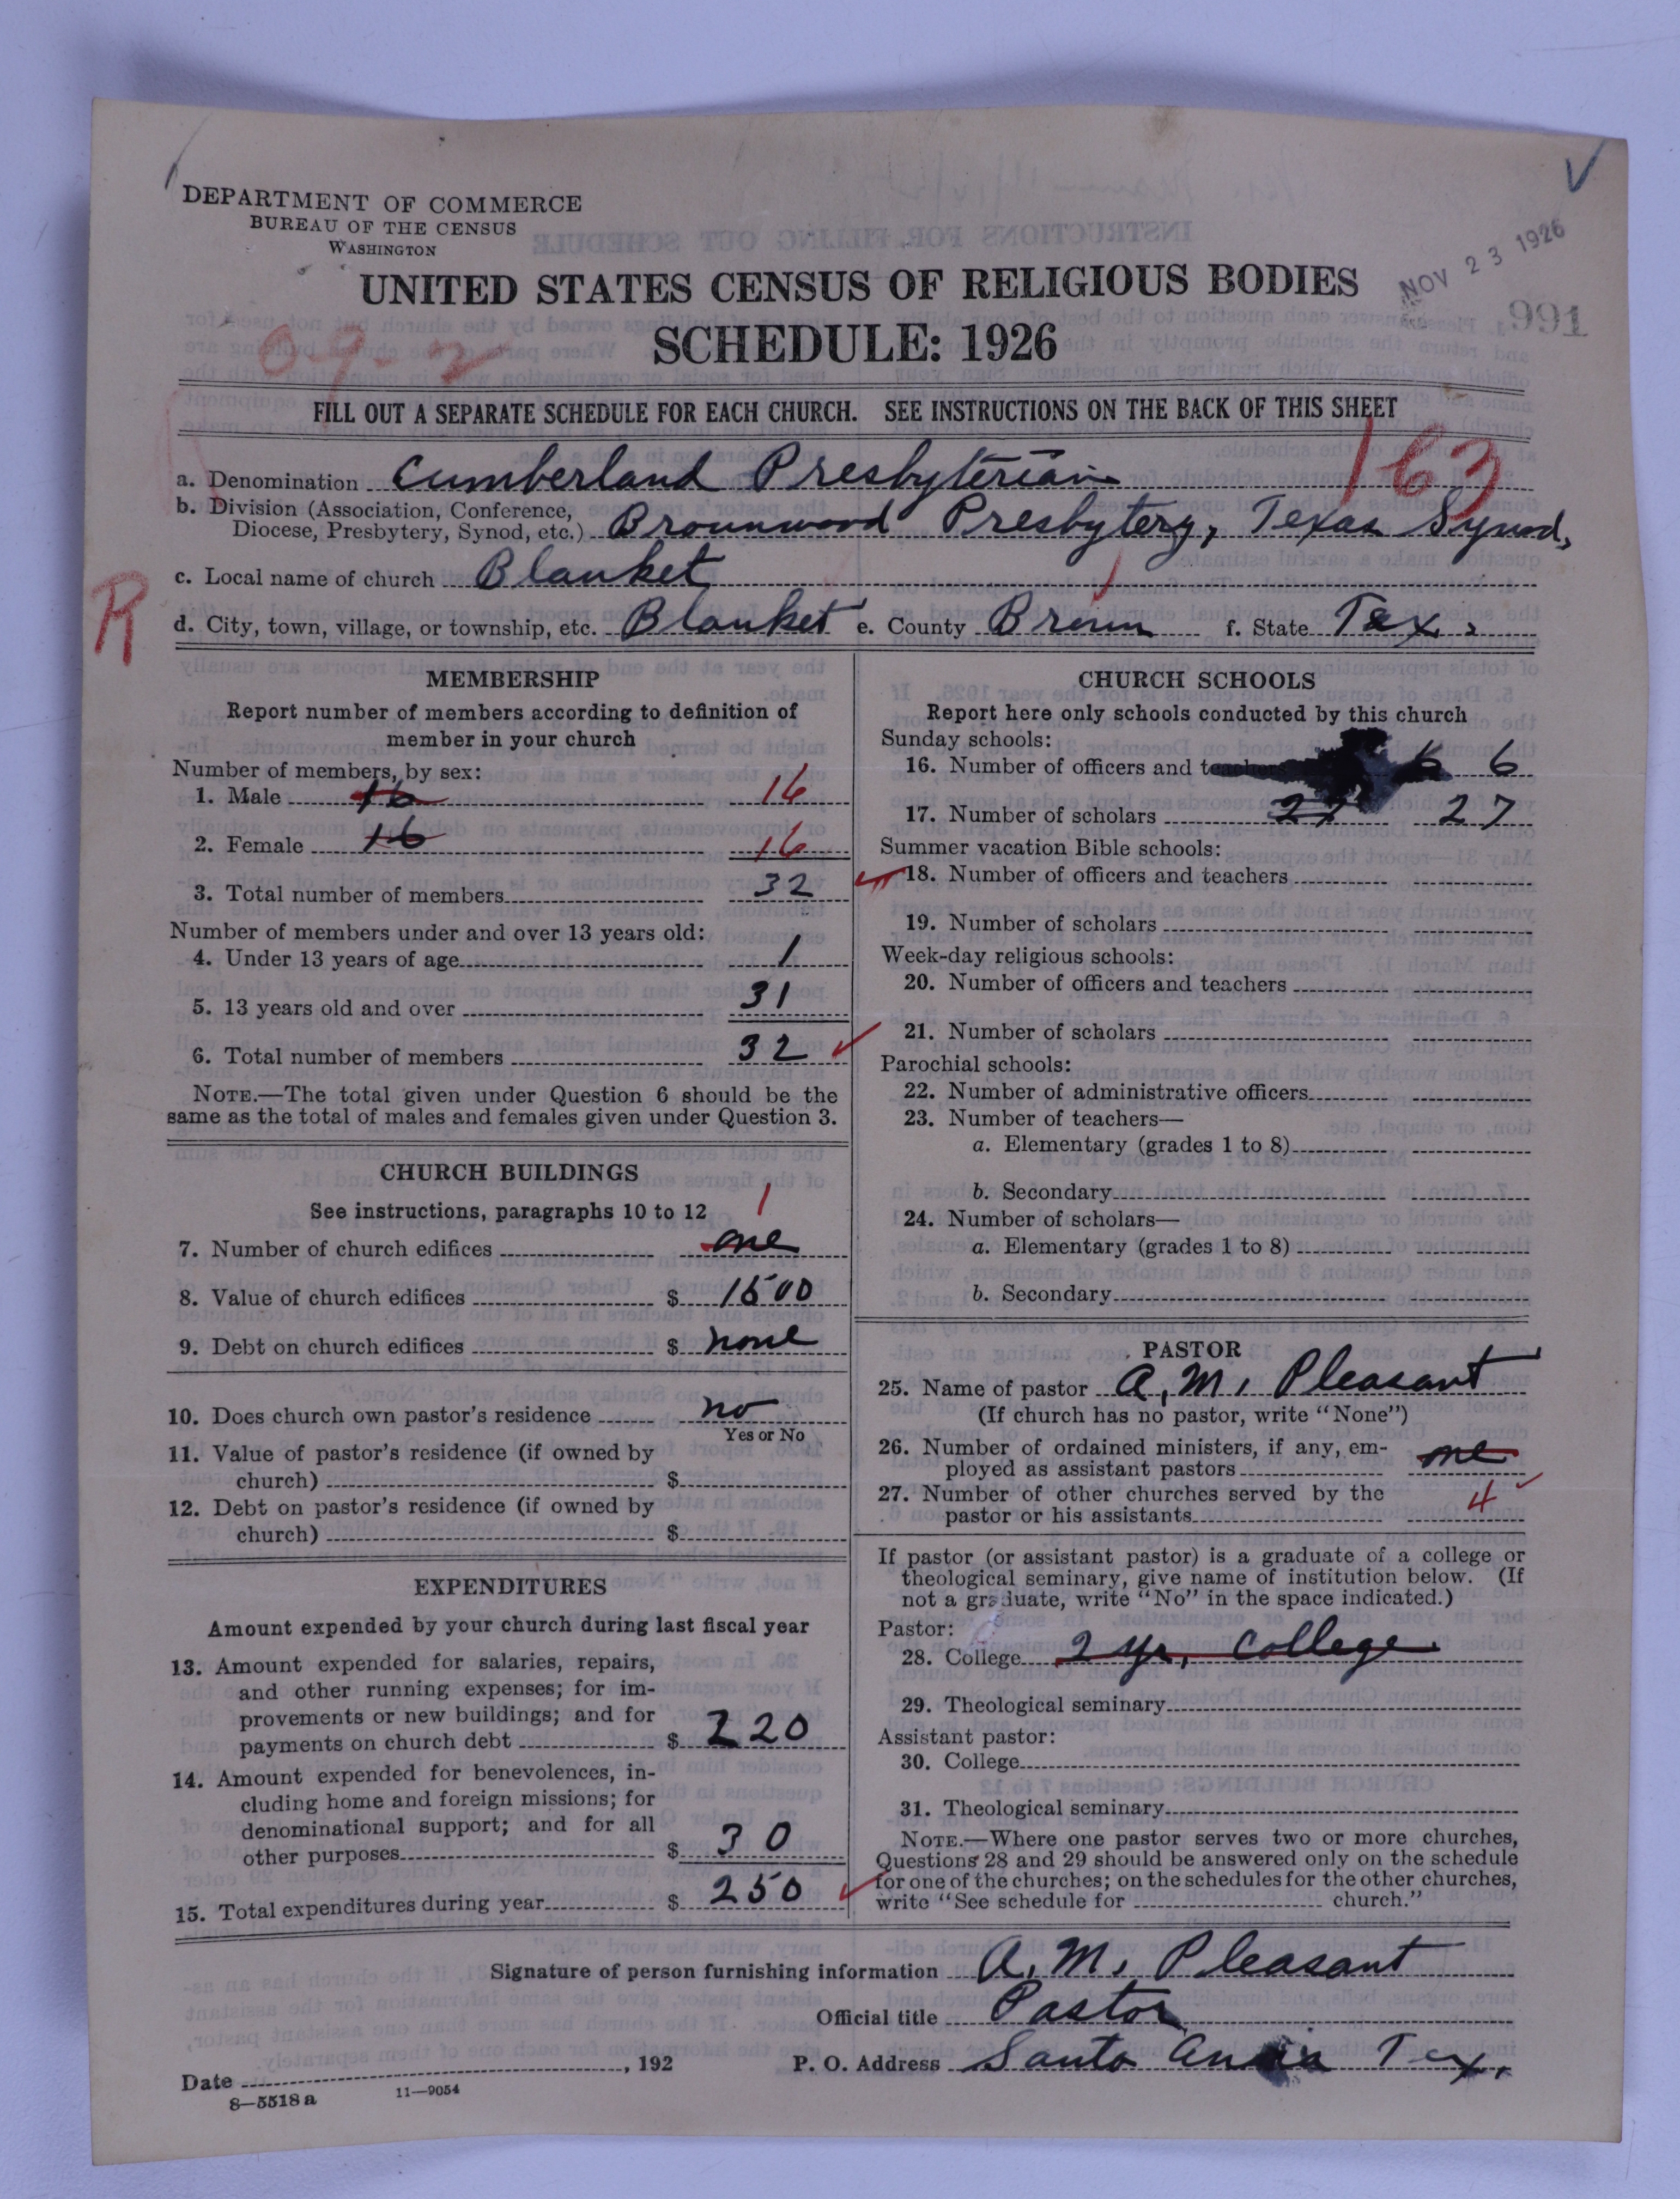 DEPARTMENT OF COMMERCE
BUREAU OF THE CENSUS
WASHINGTON
UNITED STATES CENSUS OF RELIGIOUS BODIES
NOV 23 1926
991
SCHEDULE: 1926
09-2
FILL OUT A SEPARATE SCHEDULE FOR EACH CHURCH. SEE INSTRUCTIONS ON THE BACK OF THIS SHEET
163
a. Denomination Cumberland Presbyterian
b. Division (Association, Conference,
Diocese, Presbytery, Synod, etc.) Brownwood Presbytery, Texas Synod,
c. Local name of church Blanket
R
d. City, town, village, or township, etc. Blanket e. County Brown f. State Tex.
MEMBERSHIP
Report number of members according to definition of
member in your church
Number of members, by sex:
1. Male 16 16
2. Female 16 16
3. Total number of members 32
Number of members under and over 13 years old:
4. Under 13 years of age 1
5. 13 years old and over 31
6. Total number of members 32
NOTE.—The total given under Question 6 should be the
same as the total of males and females given under Question 3.
CHURCH BUILDINGS
See instructions, paragraphs 10 to 12
1
7. Number of church edifices one
8. Value of church edifices $ 1500
9. Debt on church edifices $ none
10. Does church own pastor's residence no
Yes or No
11. Value of pastor's residence (if owned by
church) $
12. Debt on pastor's residence (if owned by
church) $
EXPENDITURES
Amount expended by your church during last fiscal year
13. Amount expended for salaries, repairs,
and other running expenses; for im-
provements or new buildings; and for
payments on church debt $ 220
14. Amount expended for benevolences, in-
cluding home and foreign missions; for
denominational support; and for all
other purposes $ 30
15. Total expenditures during year $ 250
CHURCH SCHOOLS
Report here only schools conducted by this church
Sunday schools:
16. Number of officers and teachers 6 6
17. Number of scholars 27 27
Summer vacation Bible schools:
18. Number of officers and teachers
19. Number of scholars
Week-day religious schools:
20. Number of officers and teachers
21. Number of scholars
Parochial schools:
22. Number of administrative officers
23. Number of teachers—
a. Elementary (grades 1 to 8)
b. Secondary
24. Number of scholars—
a. Elementary (grades 1 to 8)
b. Secondary
PASTOR
25. Name of pastor A. M. Pleasant
(If church has no pastor, write "None")
26. Number of ordained ministers, if any, em-
ployed as assistant pastors one
27. Number of other churches served by the
pastor or his assistants 4
If pastor (or assistant pastor) is a graduate of a college or
theological seminary, give name of institution below. (If
not a graduate, write "No" in the space indicated.)
Pastor:
28. College 2 yr, College.
29. Theological seminary
Assistant pastor:
30. College
31. Theological seminary
NOTE.—Where one pastor serves two or more churches,
Questions 28 and 29 should be answered only on the schedule
for one of the churches; on the schedules for the other churches,
write "See schedule for church."
Signature of person furnishing information A. M. Pleasant
Official title Pastor
Date , 192 P. O. Address Santa Anna Tex.
8—5518a 11—9054